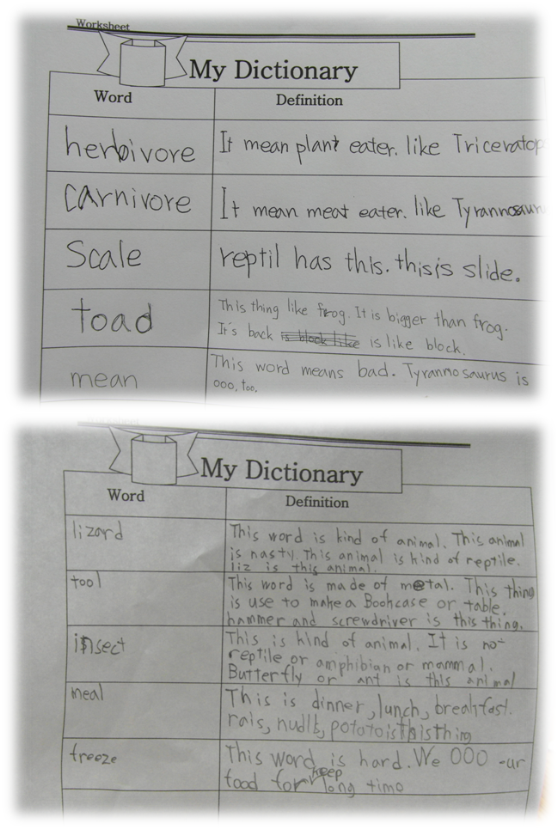 Worksheet
My Dictionary
Word Definition
herbivore It mean plant eater. like Triceratop
carnivore It mean meat eater. like Tyrannosaur
Scale reptil has this. this is slide.
toad This thing like frog. It is bigger than frog.
It's back is like block.
mean This word means bad. Tyrannosaurus is
ooo, too.
My Dictionary
Word Definition
lizard This word is kind of animal. This animal
is nasty. This animal is kind of reptile.
liz is this animal.
tool This word is made of metal. This thing
is use to make a Bookcase or table.
hammer and screwdriver is this thing.
insect This is kind of animal. It is not
reptile or amphibian or mammal.
Butterfly or ant is this animal
meal This is dinner, lunch, breakfast.
rais, nudle, pototo is this thing
freeze This word is hard. We OOO -ur
food for keep long time